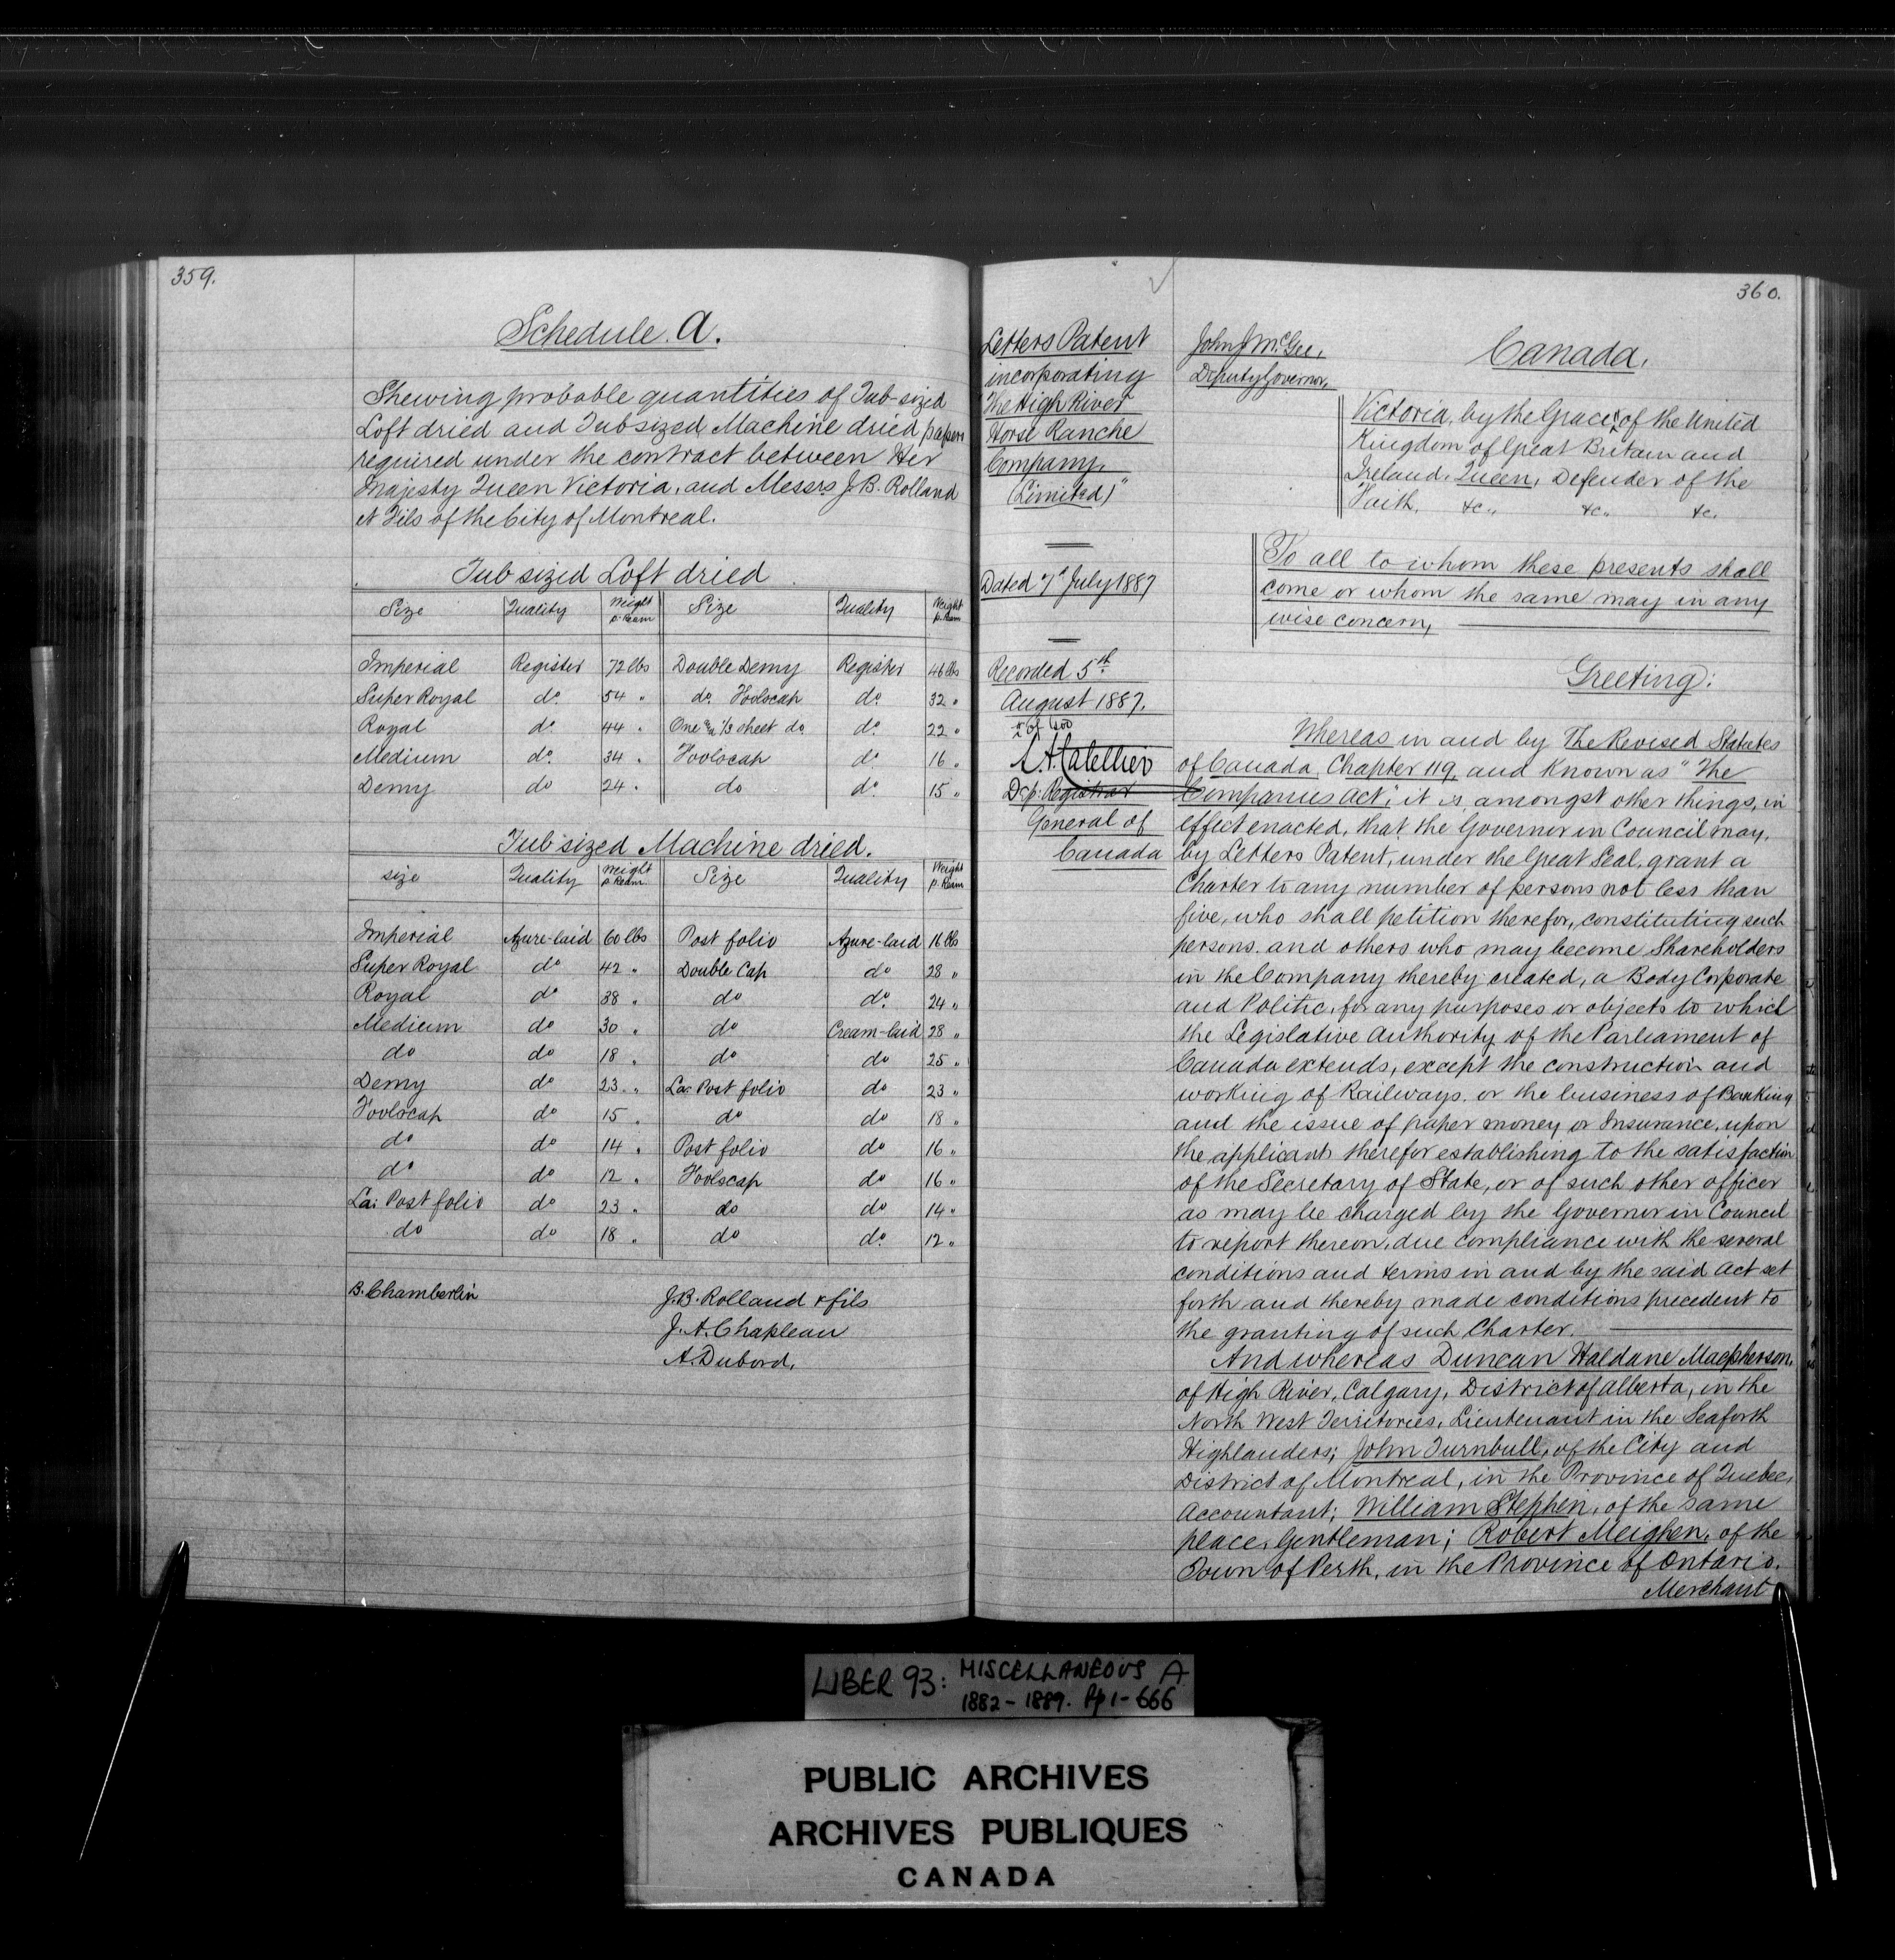 359.
Schedule. A.
Shewing probable quantities of Tub-sized
Loft dried and Tub sized, Machine dried papers
required under the contract between Her
Majesty Queen Victoria, and Messrs J. B. Rolland
et Fils of the City of Montreal.
Tub sized Loft dried
Size Quality Weight p. Ream Size Quality Weight p. Ream
Imperial Register 72 lbs Double Demy Register 46 lbs
Super Royal do. 54 " do. Foolscap do. 32 "
Royal do. 44 " One & 1/3 sheet do. do. 22 "
Medium do. 34 " Foolscap do 16 "
Demy do 24 " do do. 15 "
Tub sized Machine dried.
size Quality Weight p. Ream Size Quality Weight p. Ream
Imperial Azure-laid 60 lbs Post folio Azure-laid 16 lbs
Super Royal do 42 " Double Cap do 28 "
Royal do 38 " do do. 24 "
Medium do 30 " do Cream-laid 28 "
do do 18 " do do 25 "
Demy do 23 " La: Post folio do 23 "
Foolscap do 15 " do do 18 "
do do 14 " Post folio do 16 "
do do 12 " Foolscap do 16 "
La: Post folio do 23 " do do 14 "
do do 18 " do do. 12 "
B. Chamberlin J. B. Rolland & fils
J. A. Chapleau
A. Dubord,
360.
Letters Patent
incorporating
"The High River
Horse Ranche
Company,
(Limited)"
Dated 7th July 1887
Recorded 5th
August 1887.
L. A. Catellier
Dep: Registrar
General of
Canada
John J McGee,
Deputy Governor,
Canada,
Victoria, by the Grace of the United
Kingdom of Great Britain and
Ireland, Queen, Defender of the
Faith, &c., &c., &c.
To all to whom these presents shall
come or whom the same may in any
wise concern,
Greeting:
Whereas in and by The Revised Statutes
of Canada, Chapter 119, and known as "The
Companies Act," it is, amongst other things, in
effect enacted, that the Governor in Council may,
by Letters Patent, under the Great Seal, grant a
Charter to any number of persons not less than
five, who shall petition therefor, constituting such
persons, and others who may become Shareholders
in the Company thereby created, a Body Corporate
and Politic, for any purposes or objects to which
the Legislative Authority of the Parliament of
Canada extends, except the construction and
working of Railways, or the business of Banking
and the issue of paper money or Insurance, upon
the applicants therefor establishing to the satisfaction
of the Secretary of State, or of such other officer
as may be charged by the Governor in Council
to report thereon, due compliance with the several
conditions and terms in and by the said Act set
forth and thereby made conditions precedent to
the granting of such Charter.
And whereas Duncan Haldane Macpherson,
of High River, Calgary, District of Alberta, in the
North West Territories, Lieutenant in the Seaforth
Highlanders; John Turnbull, of the City and
District of Montreal, in the Province of Quebec,
Accountant; William Stephen, of the same
place, Gentleman; Robert Meighen, of the
Town of Perth, in the Province of Ontario,
Merchant
LIBER 93: MISCELLANEOUS A
1882-1889. Pp 1-666
PUBLIC ARCHIVES
ARCHIVES PUBLIQUES
CANADA